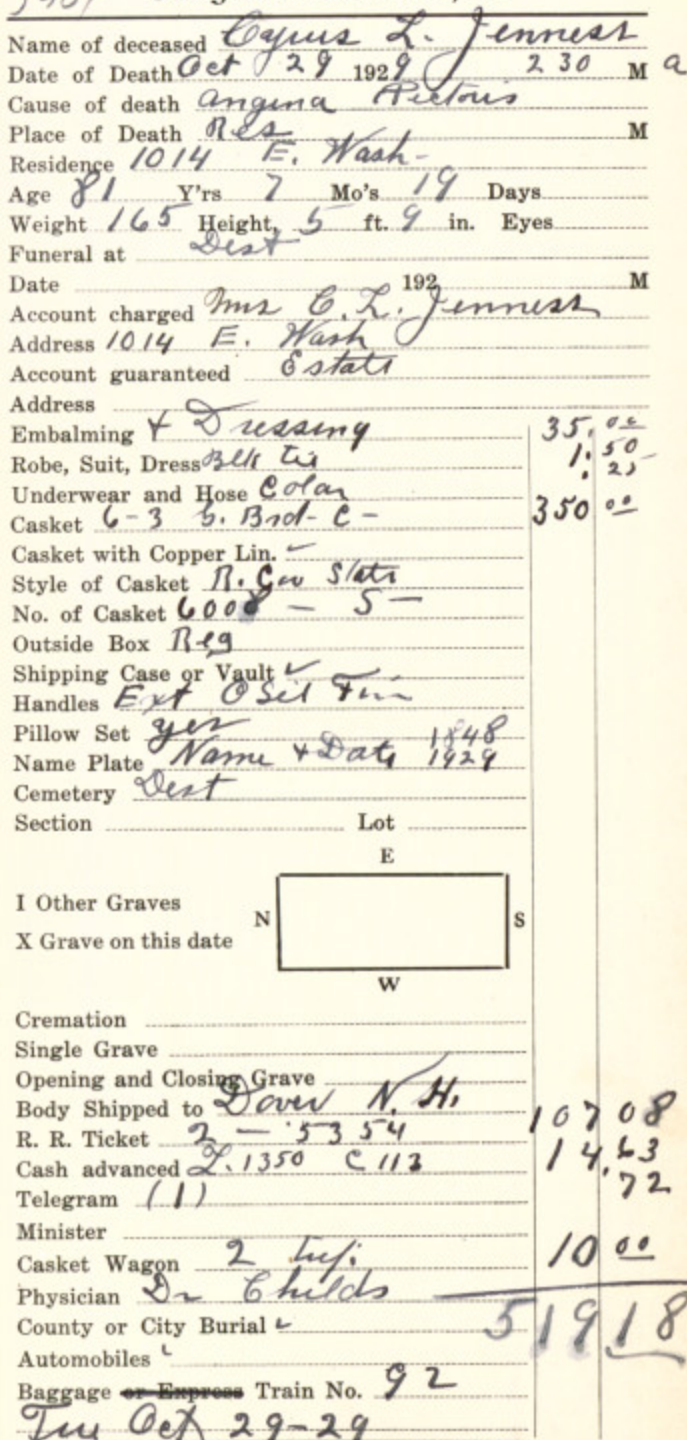 Name of deceased Cyrus L. Jenness
Date of Death Oct 29 1929 2 30 M a
Cause of death angina Pectoris
Place of Death Res M
Residence 1014 E. Wash-
Age 81 Y'rs 7 Mo's 19 Days
Weight 165 Height, 5 ft. 9 in. Eyes
Funeral at Dest
Date 192 M
Account charged Mrs C. L. Jenness
Address 1014 E. Wash
Account guaranteed Estate
Address
Embalming & Dressing 35.00
Robe, Suit, Dress Blk tie 1.50
Underwear and Hose Colar .25
Casket 6-3 S. Brd- C- 350 00
Casket with Copper Lin.
Style of Casket R. Cor State
No. of Casket 6008 - S -
Outside Box Reg
Shipping Case or Vault
Handles Ext O Sil Fin
Pillow Set yes
Name Plate Name & Date 1848 1929
Cemetery Dest
Section Lot
E
I Other Graves
N S
X Grave on this date
W
Cremation
Single Grave
Opening and Closing Grave
Body Shipped to Dover N. H.
R. R. Ticket 2 - 5354 107 08
Cash advanced L. 1350 C 113 14.63
Telegram (1) 72
Minister
Casket Wagon 2 10 00
Physician Dr Childs
County or City Burial 519 18
Automobiles
Baggage or Express Train No. 92
Tue Oct 29-29